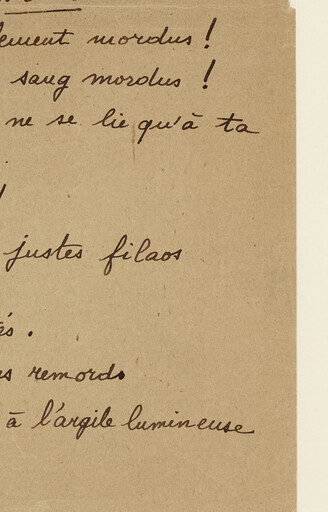 lement mordus !
sang mordus !
ne se lie qu'à ta
!
justes filaos
és .
s remords
à l'argile lumineuse